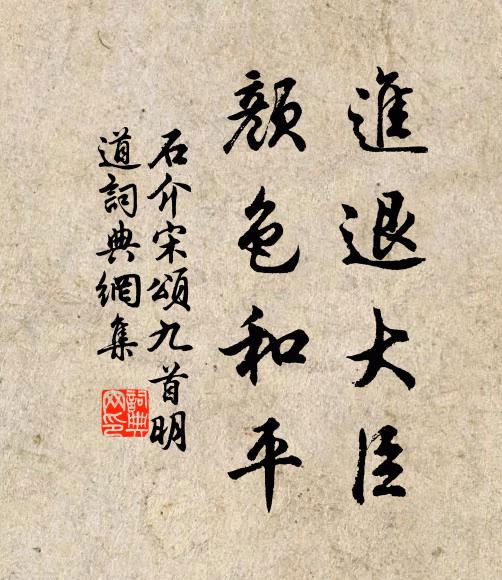 進退大臣
顏色和平
石介宋頌九首明
道詞典網集
詞典網印